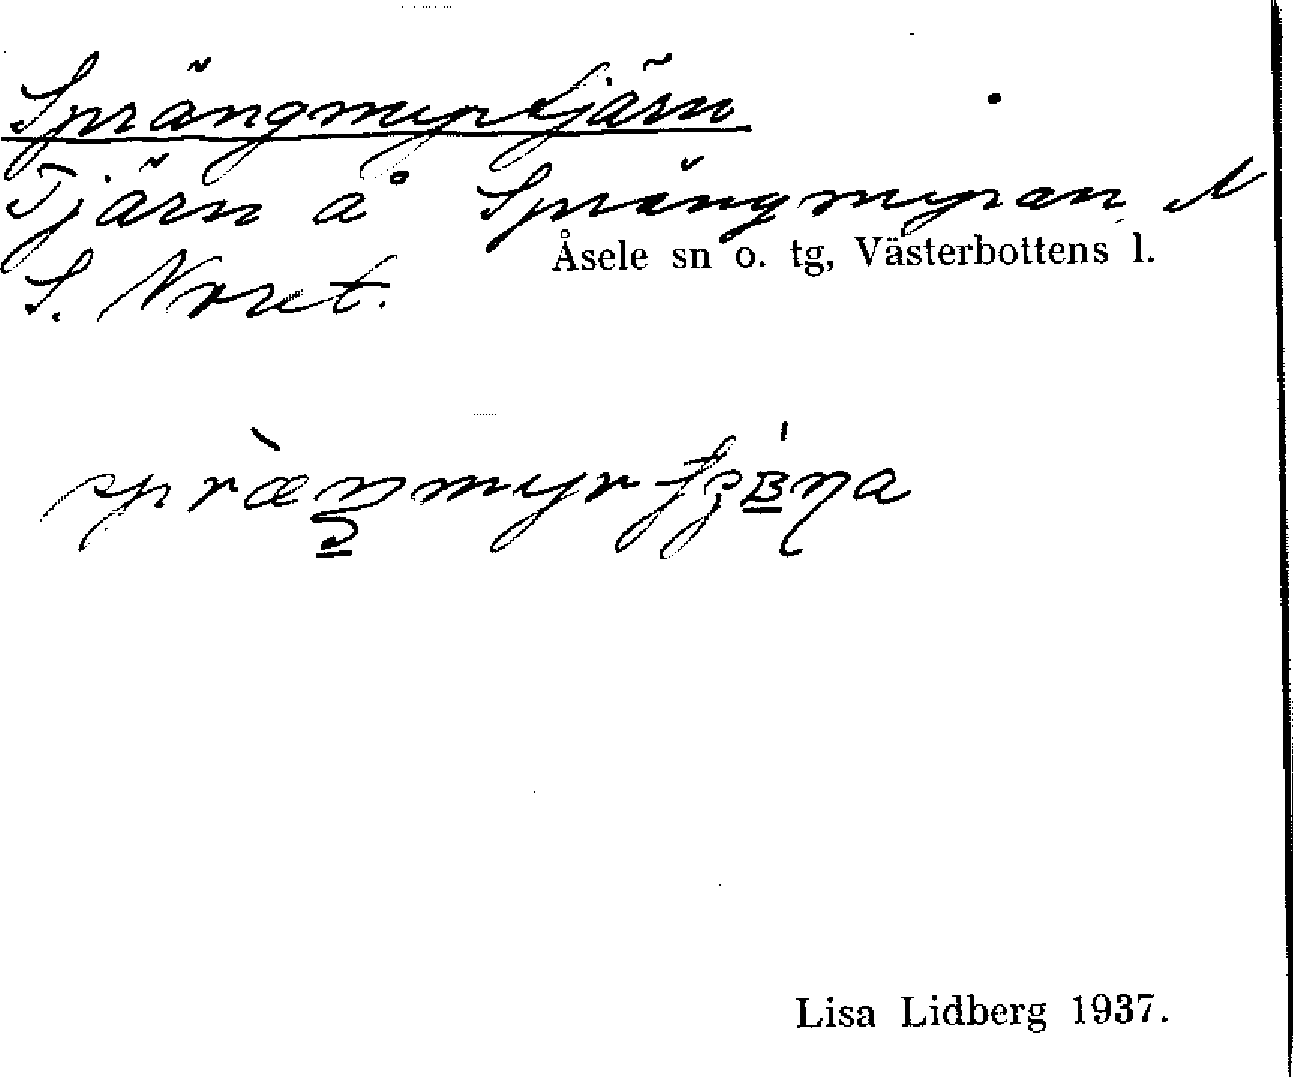 Sprängmyrtjärn
Tjärn å Sprängmyran, N
Åsele sn o. tg, Västerbottens l.
S. Noret.
Lisa Lidberg 1937.